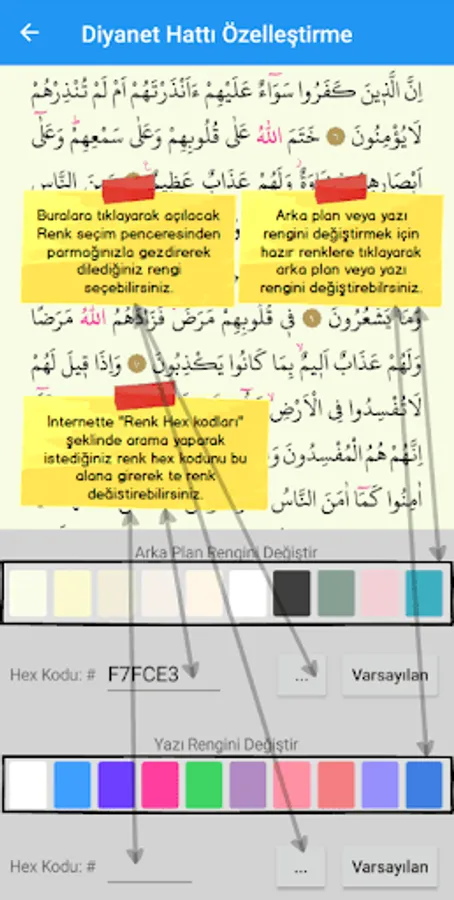 Diyanet Hattı Özelleştirme
اِنَّ الَّذ۪ينَ كَفَرُوا سَوَٓاءٌ عَلَيْهِمْ ءَاَنْذَرْتَهُمْ اَمْ لَمْ تُنْذِرْهُمْ
لَا يُؤْمِنُونَ ٦ خَتَمَ اللّٰهُ عَلٰى قُلُوبِهِمْ وَعَلٰى سَمْعِهِمْۜ وَعَلٰٓى
اَبْصَارِهِمْ وَلَهُمْ عَذَابٌ عَظ۪يمٌ۟ النَّاسِ
Buralara tıklayarak açılacak
Renk seçim penceresinden
parmağınızla gezdirerek
dilediğiniz rengi
seçebilirsiniz.
Arka plan veya yazı
rengini değiştirmek için
hazır renklere tıklayarak
arka plan veya yazı
rengini değiştirebilrsiniz.
وَمَا يَشْعُرُونَۜ ٩ ف۪ي قُلُوبِهِمْ مَرَضٌۙ فَزَادَهُمُ اللّٰهُ مَرَضًاۚ
وَلَهُمْ عَذَابٌ اَل۪يمٌۙ بِمَا كَانُوا يَكْذِبُونَ ١٠ وَاِذَا ق۪يلَ لَهُمْ
لَا تُفْسِدُوا فِي الْاَرْضِۙ
اِنَّهُمْ هُمُ الْمُفْسِدُونَ
اٰمِنُوا كَمَٓا اٰمَنَ النَّاسُ
Internette "Renk Hex kodları"
şeklinde arama yaparak
istediğiniz renk hex kodunu bu
alana girerek te renk
değiştirebilirsiniz.
Arka Plan Rengini Değiştir
Hex Kodu: # F7FCE3 ... Varsayılan
Yazı Rengini Değiştir
Hex Kodu: # ... Varsayılan